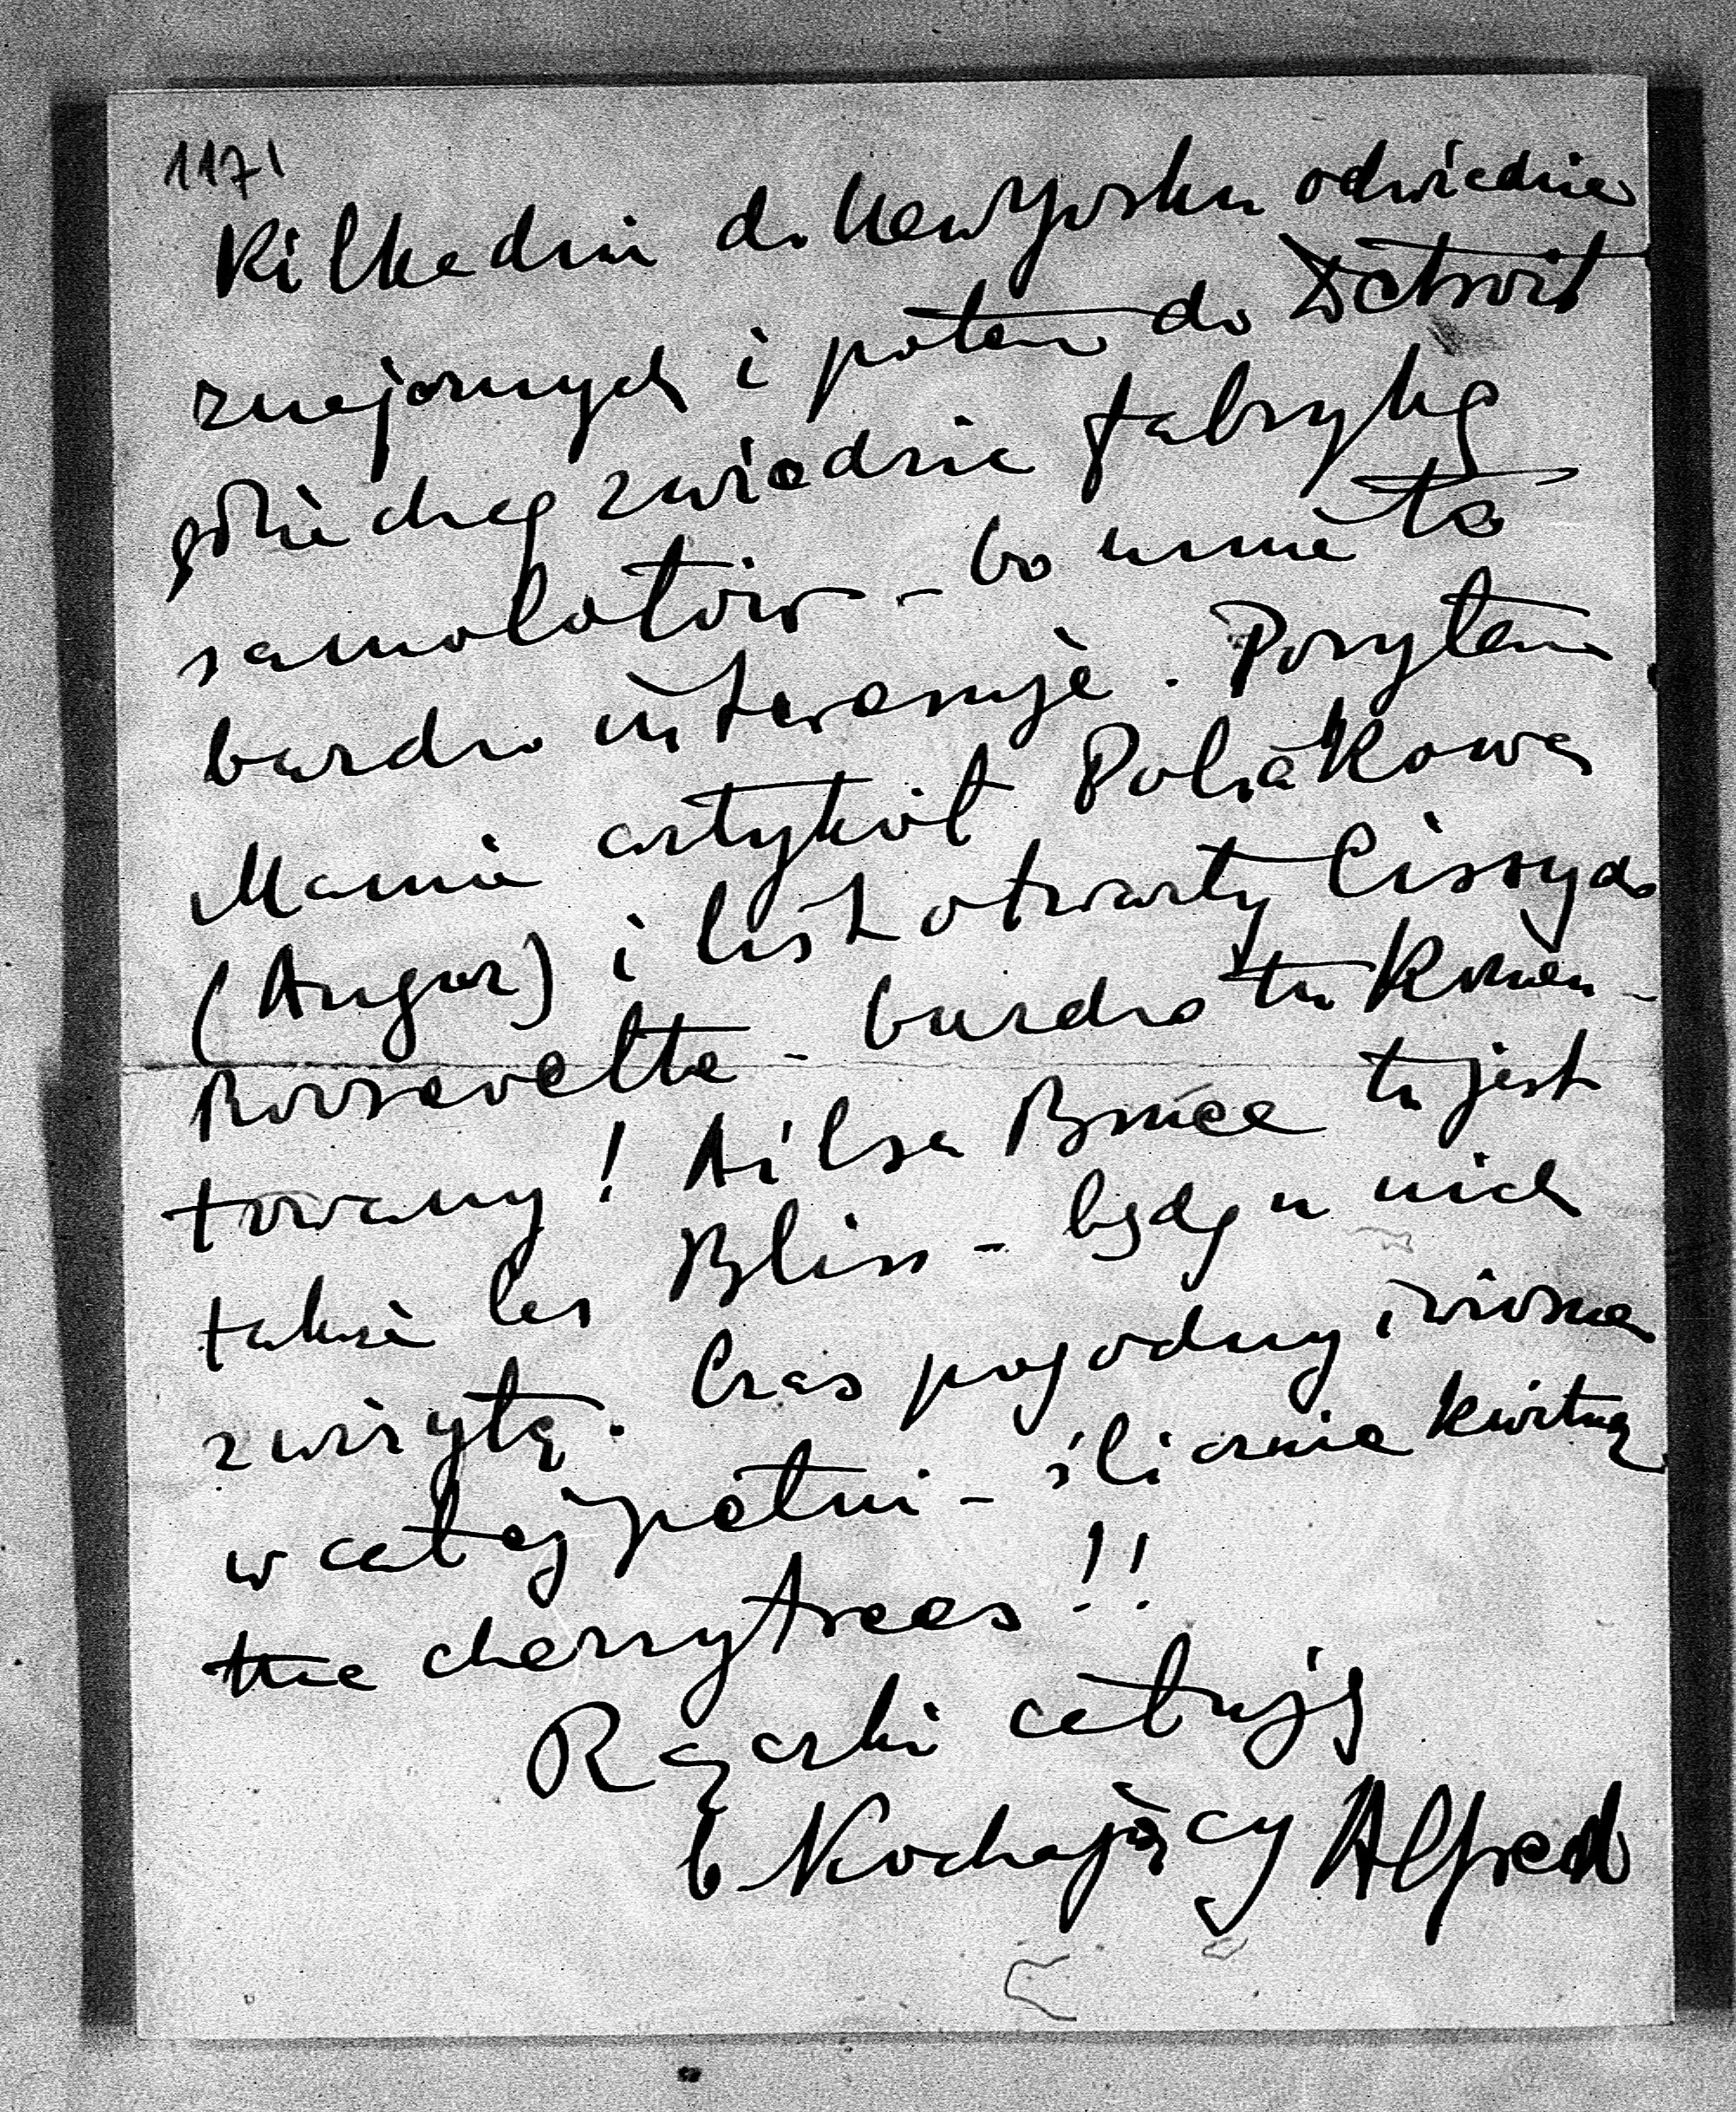 1171
Kilka dni do New Yorku odwiedzić
znajomych i potem do Detroit
gdzie chcę zwiedzić fabrykę
samolotów - bo mnie to
bardzo interesuje. Posyłam
Mamie artykuł Poliakowa
(Augur) i list otwarty Cissy do
Roosevelta - bardzo tu komen-
towany! Ailsa Bruce tu jest
także les Bliss - będę u nich
z wizytą. Czas pogodny i wiosna
w całej pełni - ślicznie kwitną
the cherrytrees!!
Rączki całuję
b. Kochający Alfred